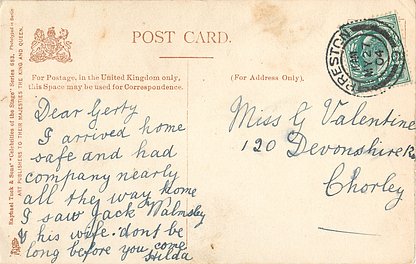 POST CARD.
For Postage, in the United Kingdom only,
this Space may be used for Correspondence.
(For Address Only).
Raphael Tuck & Sons' "Celebrities of the Stage" Series 653.
ART PUBLISHERS TO THEIR MAJESTIES THE KING AND QUEEN.
PRESTON
04
Dear Gerty
I arrived home
safe and had
company nearly
all the way home
I saw Jack Walmsley
& his wife. dont be
long before you come
Hilda
Miss G Valentine
120 Devonshire R
Chorley